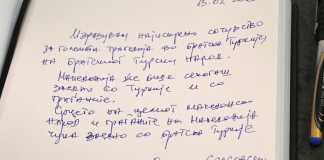 13.02
Изразувам најискрено сочувство
за големата трагедија во братска Турција,
на братскиот Турски народ.
Македонија ќе биде секогаш
заедно со Турција и со
граѓаните.
Срцето на целиот македонски
народ и граѓаните на Македонија
чука заедно со братска Турција